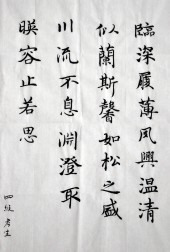 臨深履薄夙興温凊
似蘭斯馨如松之盛
川流不息淵澄取
暎容止若思
四级考生